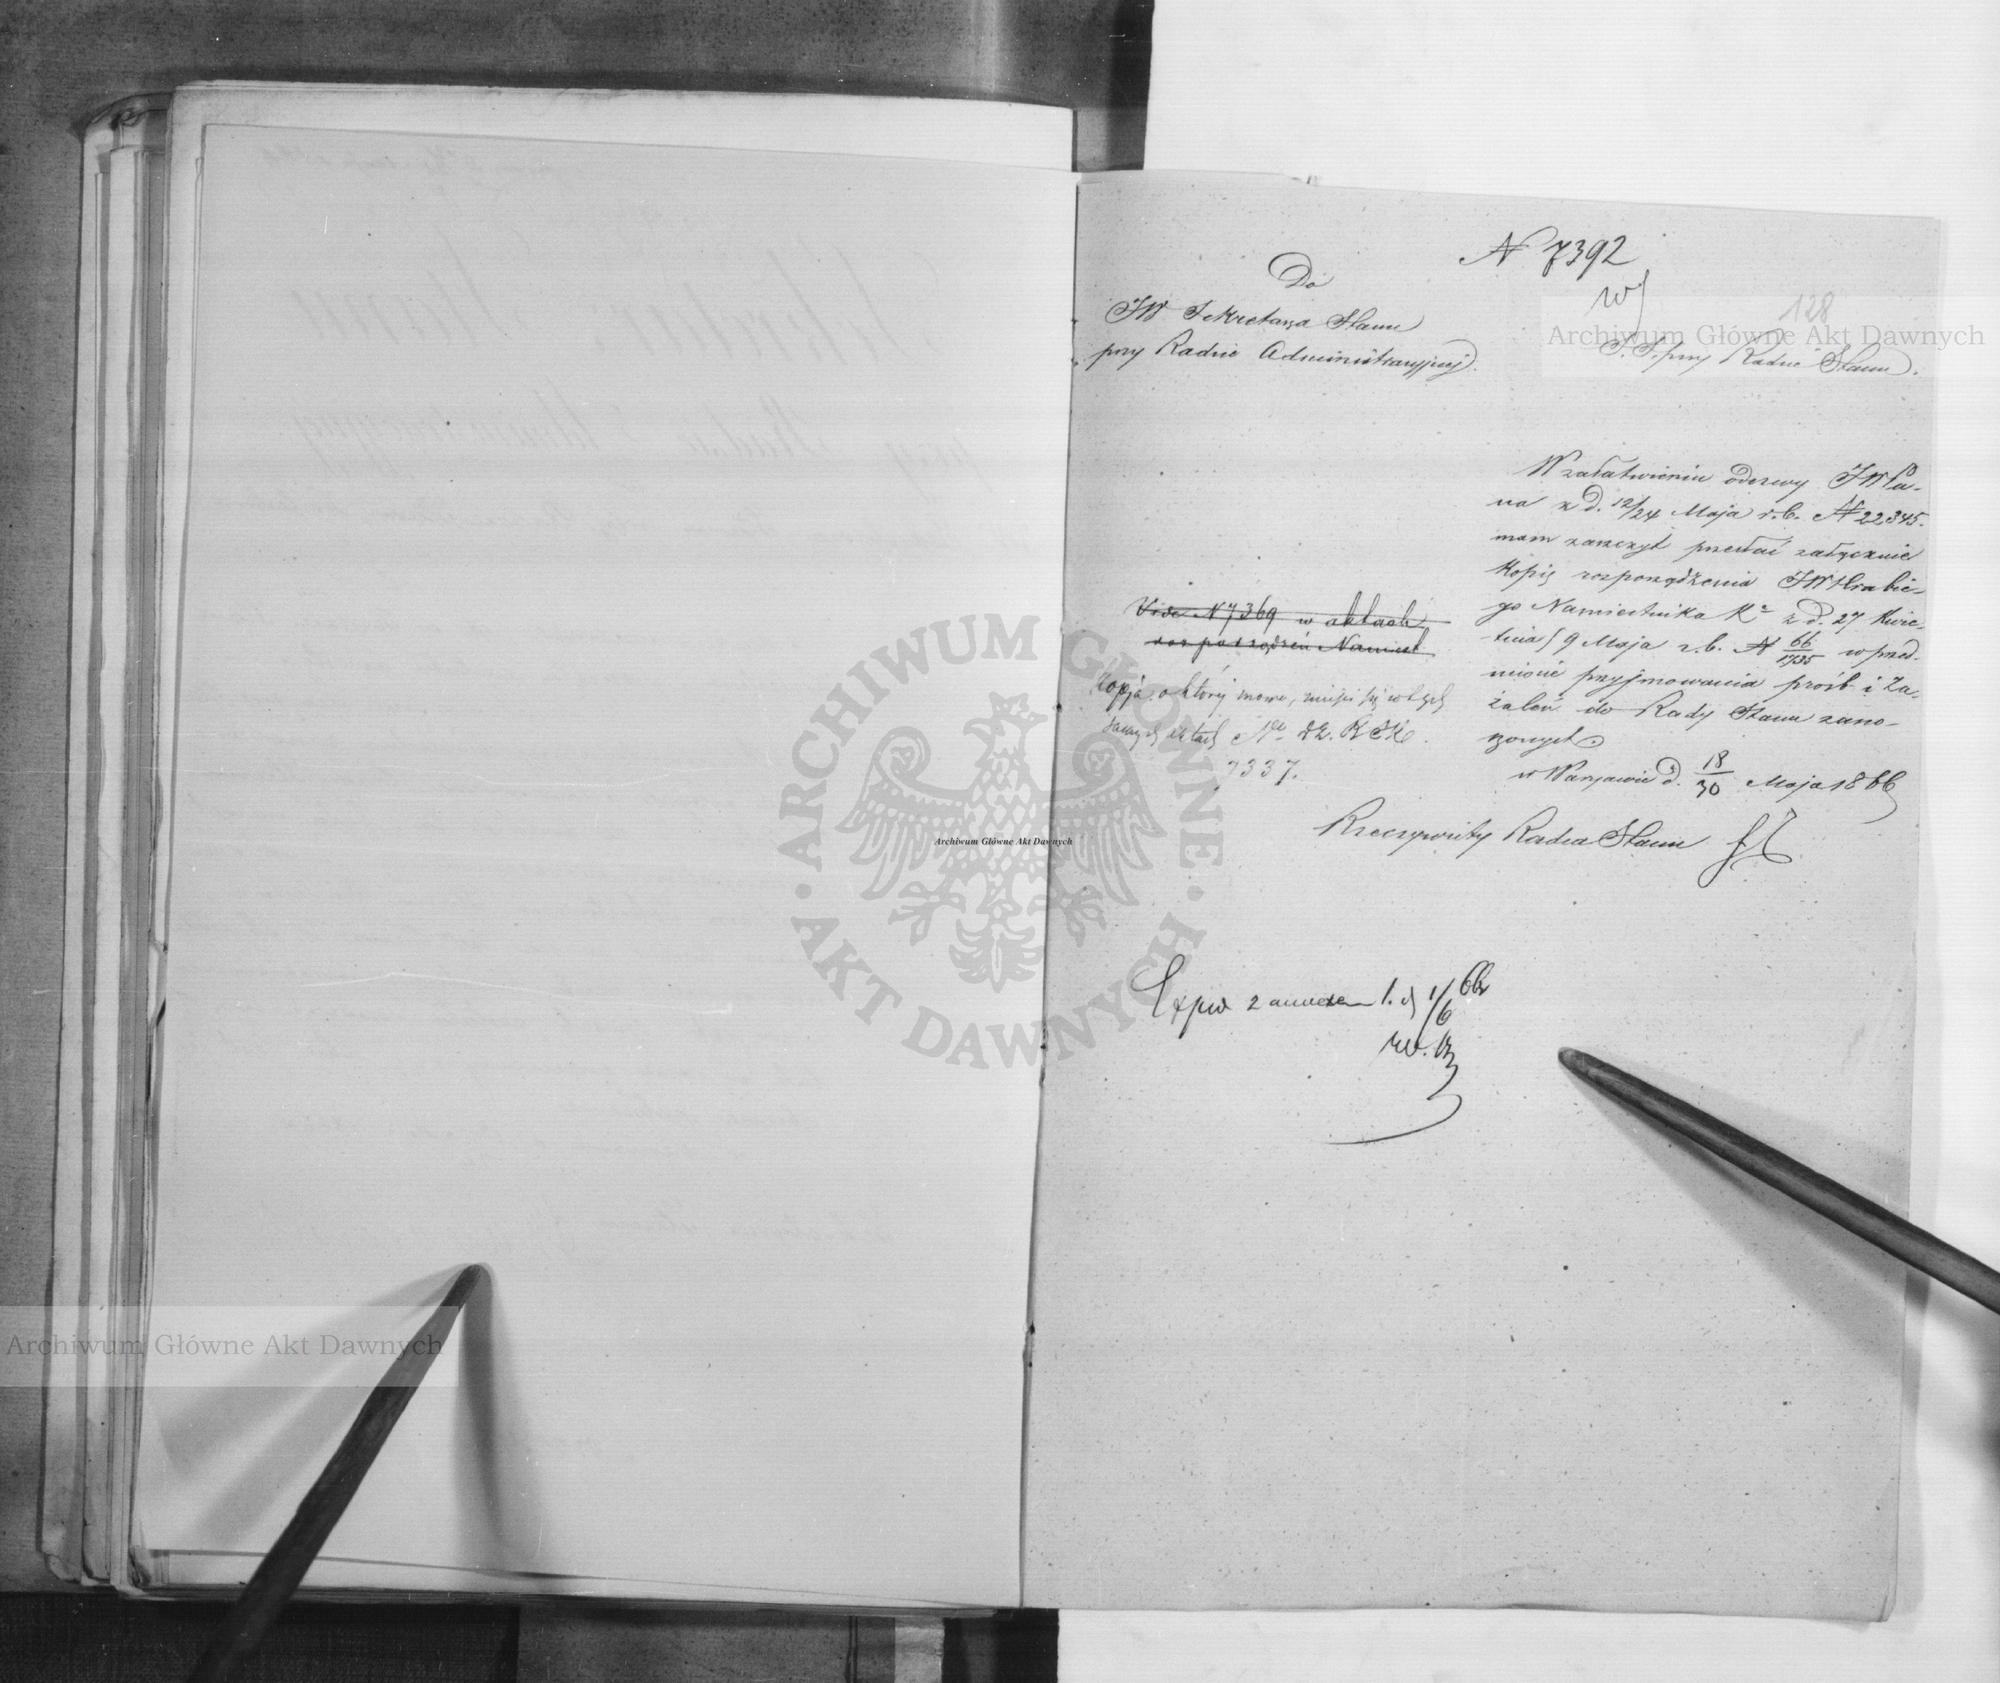 N 7392
128
Do
JW Sekretarza Stanu
przy Radzie Administracyjnej.
S. S. przy Radzie Stanu.
W załatwieniu odezwy JWPa-
na z d. 12/24 Maja r.b. N 22345.
mam zaszczyt przesłać załącznie
Kopię rozporządzenia JWHrabie-
go Namiestnika Kr z d. 27 Kwie-
tnia / 9 Maja r.b. N 66/1735 w przed-
miocie przyjmowania próśb i Za-
żaleń do Rady Stanu zano-
szonych.
w Warszawie d. 18/30 Maja 1866
Rzeczywisty Radca Stanu
Vide N 7369 w aktach
rozporządzeń Namiest.
Kopja o której mowa, mieści się w tych
samych aktach No
7337.
Exped z annexem 1. d 1/6 66
Archiwum Główne Akt Dawnych
Archiwum Główne Akt Dawnych
Archiwum Główne Akt Dawnych
ARCHIWUM GŁÓWNE AKT DAWNYCH